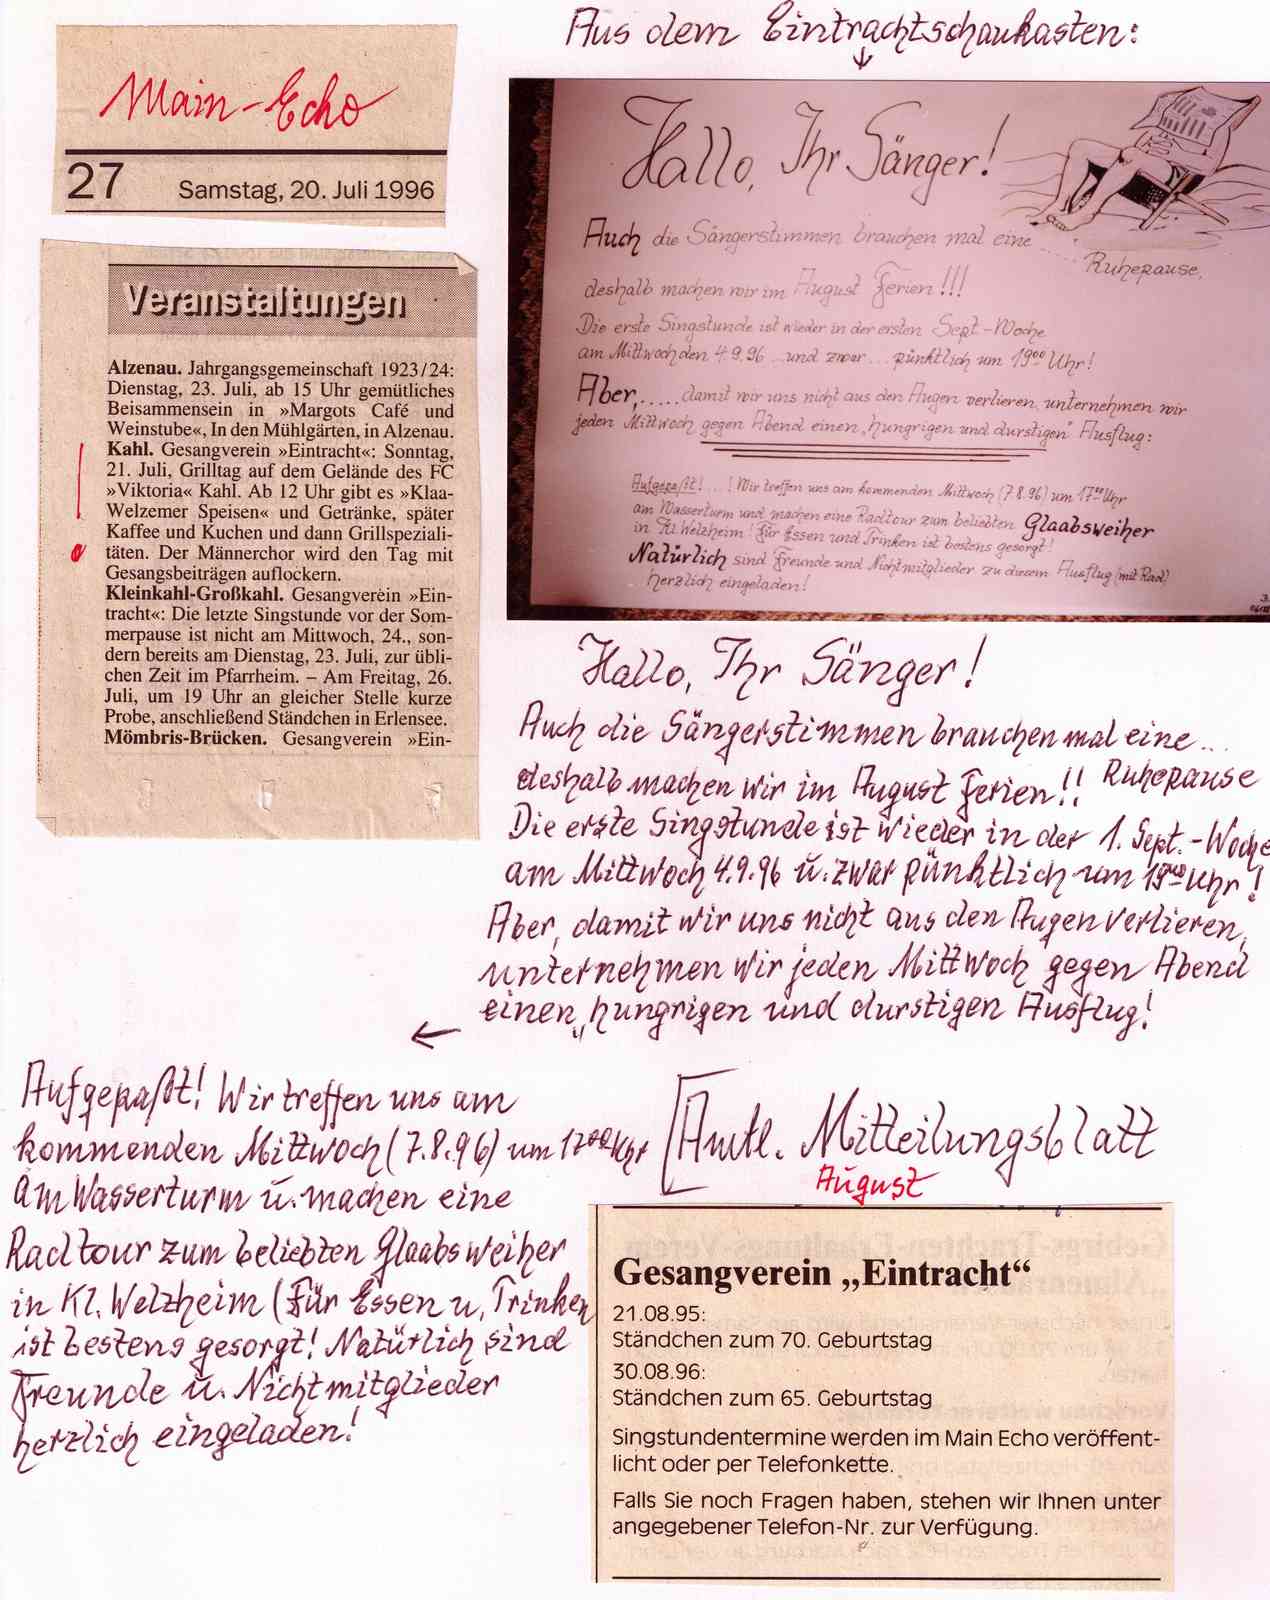 Main-Echo
27 Samstag, 20. Juli 1996
Veranstaltungen
Alzenau. Jahrgangsgemeinschaft 1923/24:
Dienstag, 23. Juli, ab 15 Uhr gemütliches
Beisammensein in »Margots Café und
Weinstube«, In den Mühlgärten, in Alzenau.
Kahl. Gesangverein »Eintracht«: Sonntag,
21. Juli, Grilltag auf dem Gelände des FC
»Viktoria« Kahl. Ab 12 Uhr gibt es »Klaa-
Welzemer Speisen« und Getränke, später
Kaffee und Kuchen und dann Grillspeziali-
täten. Der Männerchor wird den Tag mit
Gesangsbeiträgen auflockern.
Kleinkahl-Großkahl. Gesangverein »Ein-
tracht«: Die letzte Singstunde vor der Som-
merpause ist nicht am Mittwoch, 24., son-
dern bereits am Dienstag, 23. Juli, zur übli-
chen Zeit im Pfarrheim. – Am Freitag, 26.
Juli, um 19 Uhr an gleicher Stelle kurze
Probe, anschließend Ständchen in Erlensee.
Mömbris-Brücken. Gesangverein »Ein-
Aus dem Eintrachtschaukasten:
Hallo, Ihr Sänger!
Auch die Sängerstimmen brauchen mal eine ...
Ruhepause,
deshalb machen wir im August Ferien!!!
Die erste Singstunde ist wieder in der ersten Sept.-Woche
am Mittwoch den 4.9.96 ...und zwar... pünktlich um 19⁰⁰ Uhr!
Aber,.....damit wir uns nicht aus den Augen verlieren, unternehmen wir
jeden Mittwoch gegen Abend einen „hungrigen und durstigen" Ausflug:
Aufgepaßt!...! Wir treffen uns am kommenden Mittwoch (7.8.96) um 17⁰⁰ Uhr
am Wasserturm und machen eine Radtour zum beliebten Glaabsweiher
in Kl. Welzheim! Für Essen und Trinken ist bestens gesorgt!
Natürlich sind Freunde und Nichtmitglieder zu diesem Ausflug (mit Rad)
herzlich eingeladen!
Hallo, Ihr Sänger!
Auch die Sängerstimmen brauchen mal eine...
Ruhepause
deshalb machen wir im August Ferien!!
Die erste Singstunde ist wieder in der 1. Sept.-Woche
am Mittwoch 4.9.96 u. zwar pünktlich um 19⁰⁰ Uhr!
Aber, damit wir uns nicht aus den Augen verlieren,
unternehmen wir jeden Mittwoch gegen Abend
einen „hungrigen und durstigen Ausflug!
Aufgepaßt! Wir treffen uns am
kommenden Mittwoch (7.8.96) um 17⁰⁰ Uhr
am Wasserturm u. machen eine
Radtour zum beliebten Glaabsweiher
in Kl. Welzheim (Für Essen u. Trinken
ist bestens gesorgt! Natürlich sind
Freunde u. Nichtmitglieder
herzlich eingeladen!
[Amtl. Mitteilungsblatt
August
Gesangverein „Eintracht“
21.08.95:
Ständchen zum 70. Geburtstag
30.08.96:
Ständchen zum 65. Geburtstag
Singstundentermine werden im Main Echo veröffent-
licht oder per Telefonkette.
Falls Sie noch Fragen haben, stehen wir Ihnen unter
angegebener Telefon-Nr. zur Verfügung.